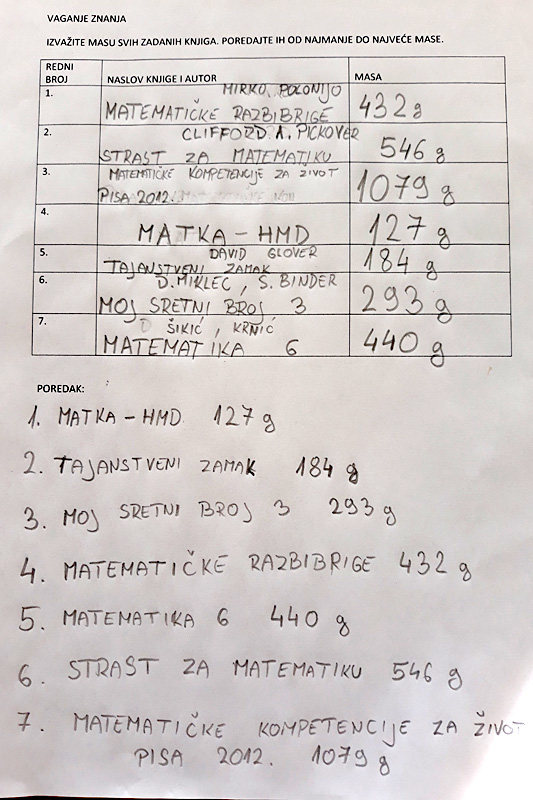 VAGANJE ZNANJA
IZVAŽITE MASU SVIH ZADANIH KNJIGA. POREDAJTE IH OD NAJMANJE DO NAJVEĆE MASE.
REDNI BROJ NASLOV KNJIGE I AUTOR MASA
1. MIRKO POLONIJO
MATEMATIČKE RAZBIBRIGE 432 g
2. CLIFFORD A. PICKOVER
STRAST ZA MATEMATIKU 546 g
3. MATEMATIČKE KOMPETENCIJE ZA ŽIVOT
PISA 2012. 1079 g
4. MATKA - HMD 127 g
5. DAVID GLOVER
TAJANSTVENI ZAMAK 184 g
6. D. MIKLEC, S. BINDER
MOJ SRETNI BROJ 3 293 g
7. ŠIKIĆ, KRNIĆ
MATEMATIKA 6 440 g
POREDAK:
1. MATKA - HMD 127 g
2. TAJANSTVENI ZAMAK 184 g
3. MOJ SRETNI BROJ 3 293 g
4. MATEMATIČKE RAZBIBRIGE 432 g
5. MATEMATIKA 6 440 g
6. STRAST ZA MATEMATIKU 546 g
7. MATEMATIČKE KOMPETENCIJE ZA ŽIVOT
PISA 2012. 1079 g